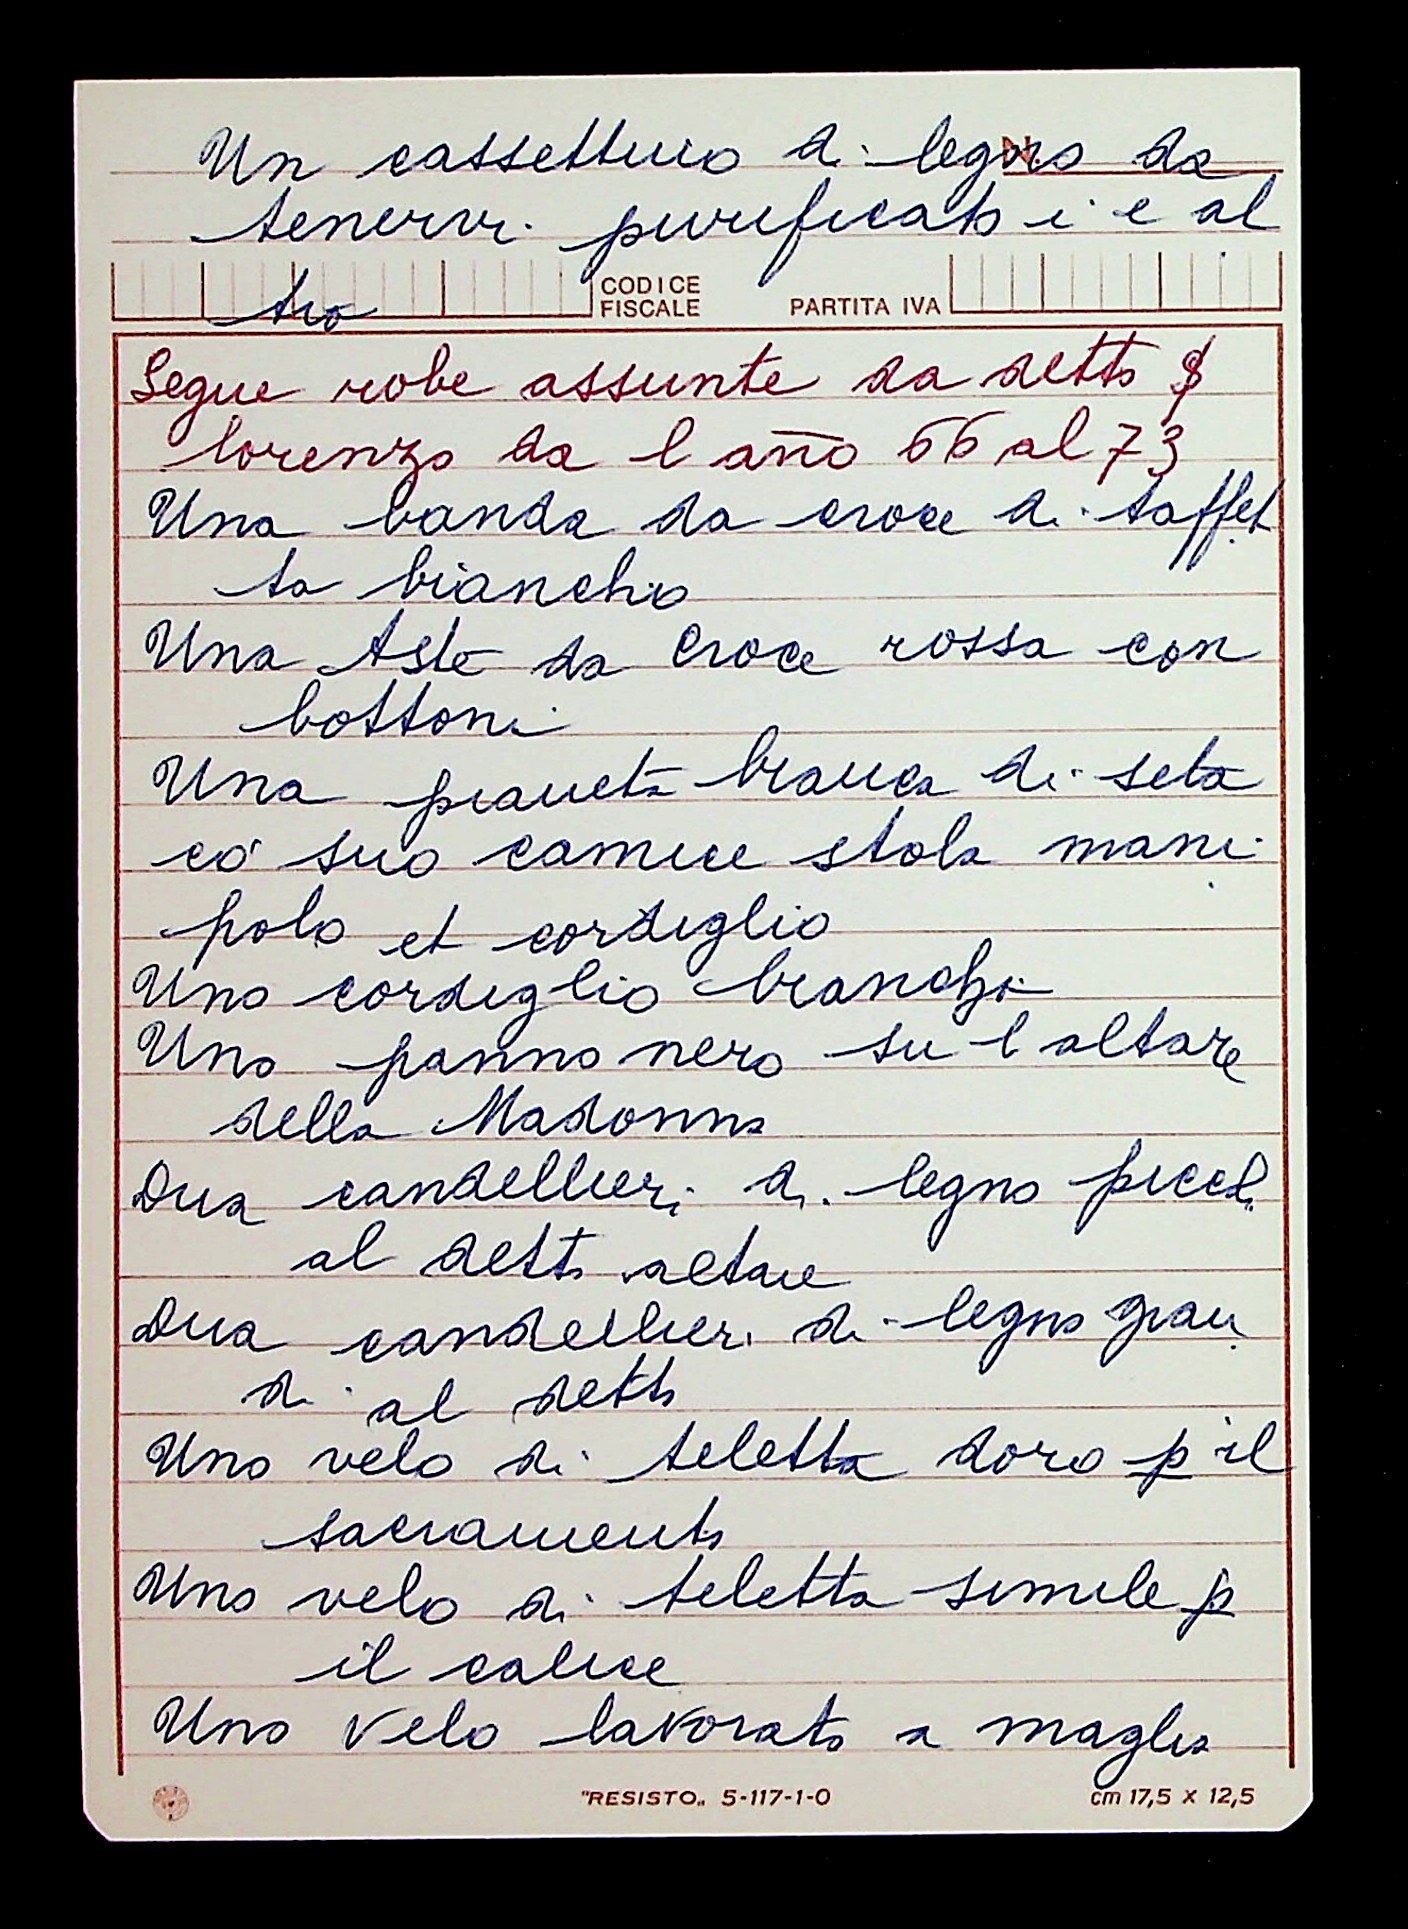 Un cassettino di legno da
N.
tenervi purificatoi e al
tro
CODICE
FISCALE
PARTITA IVA
Segue robe assunte da detto
lorenzo da l año 66 al 73
Una banda da croce di taffet
ta biancho
Una Aste da Croce rossa con
bottoni
Una pianeta bianca di seta
co' suo camice stola mani
polo et cordiglio
Uno cordiglio biancho
Uno panno nero su l altare
della Madonna
Dua candellieri di legno piccoli
al detto altare
Dua candellieri di legno gran
di al detto
Uno velo di teletta doro p il
sacramento
Uno velo di teletta simile p
il calice
Uno velo lavorato a maglia
"RESISTO„ 5-117-1-0
cm 17,5 x 12,5